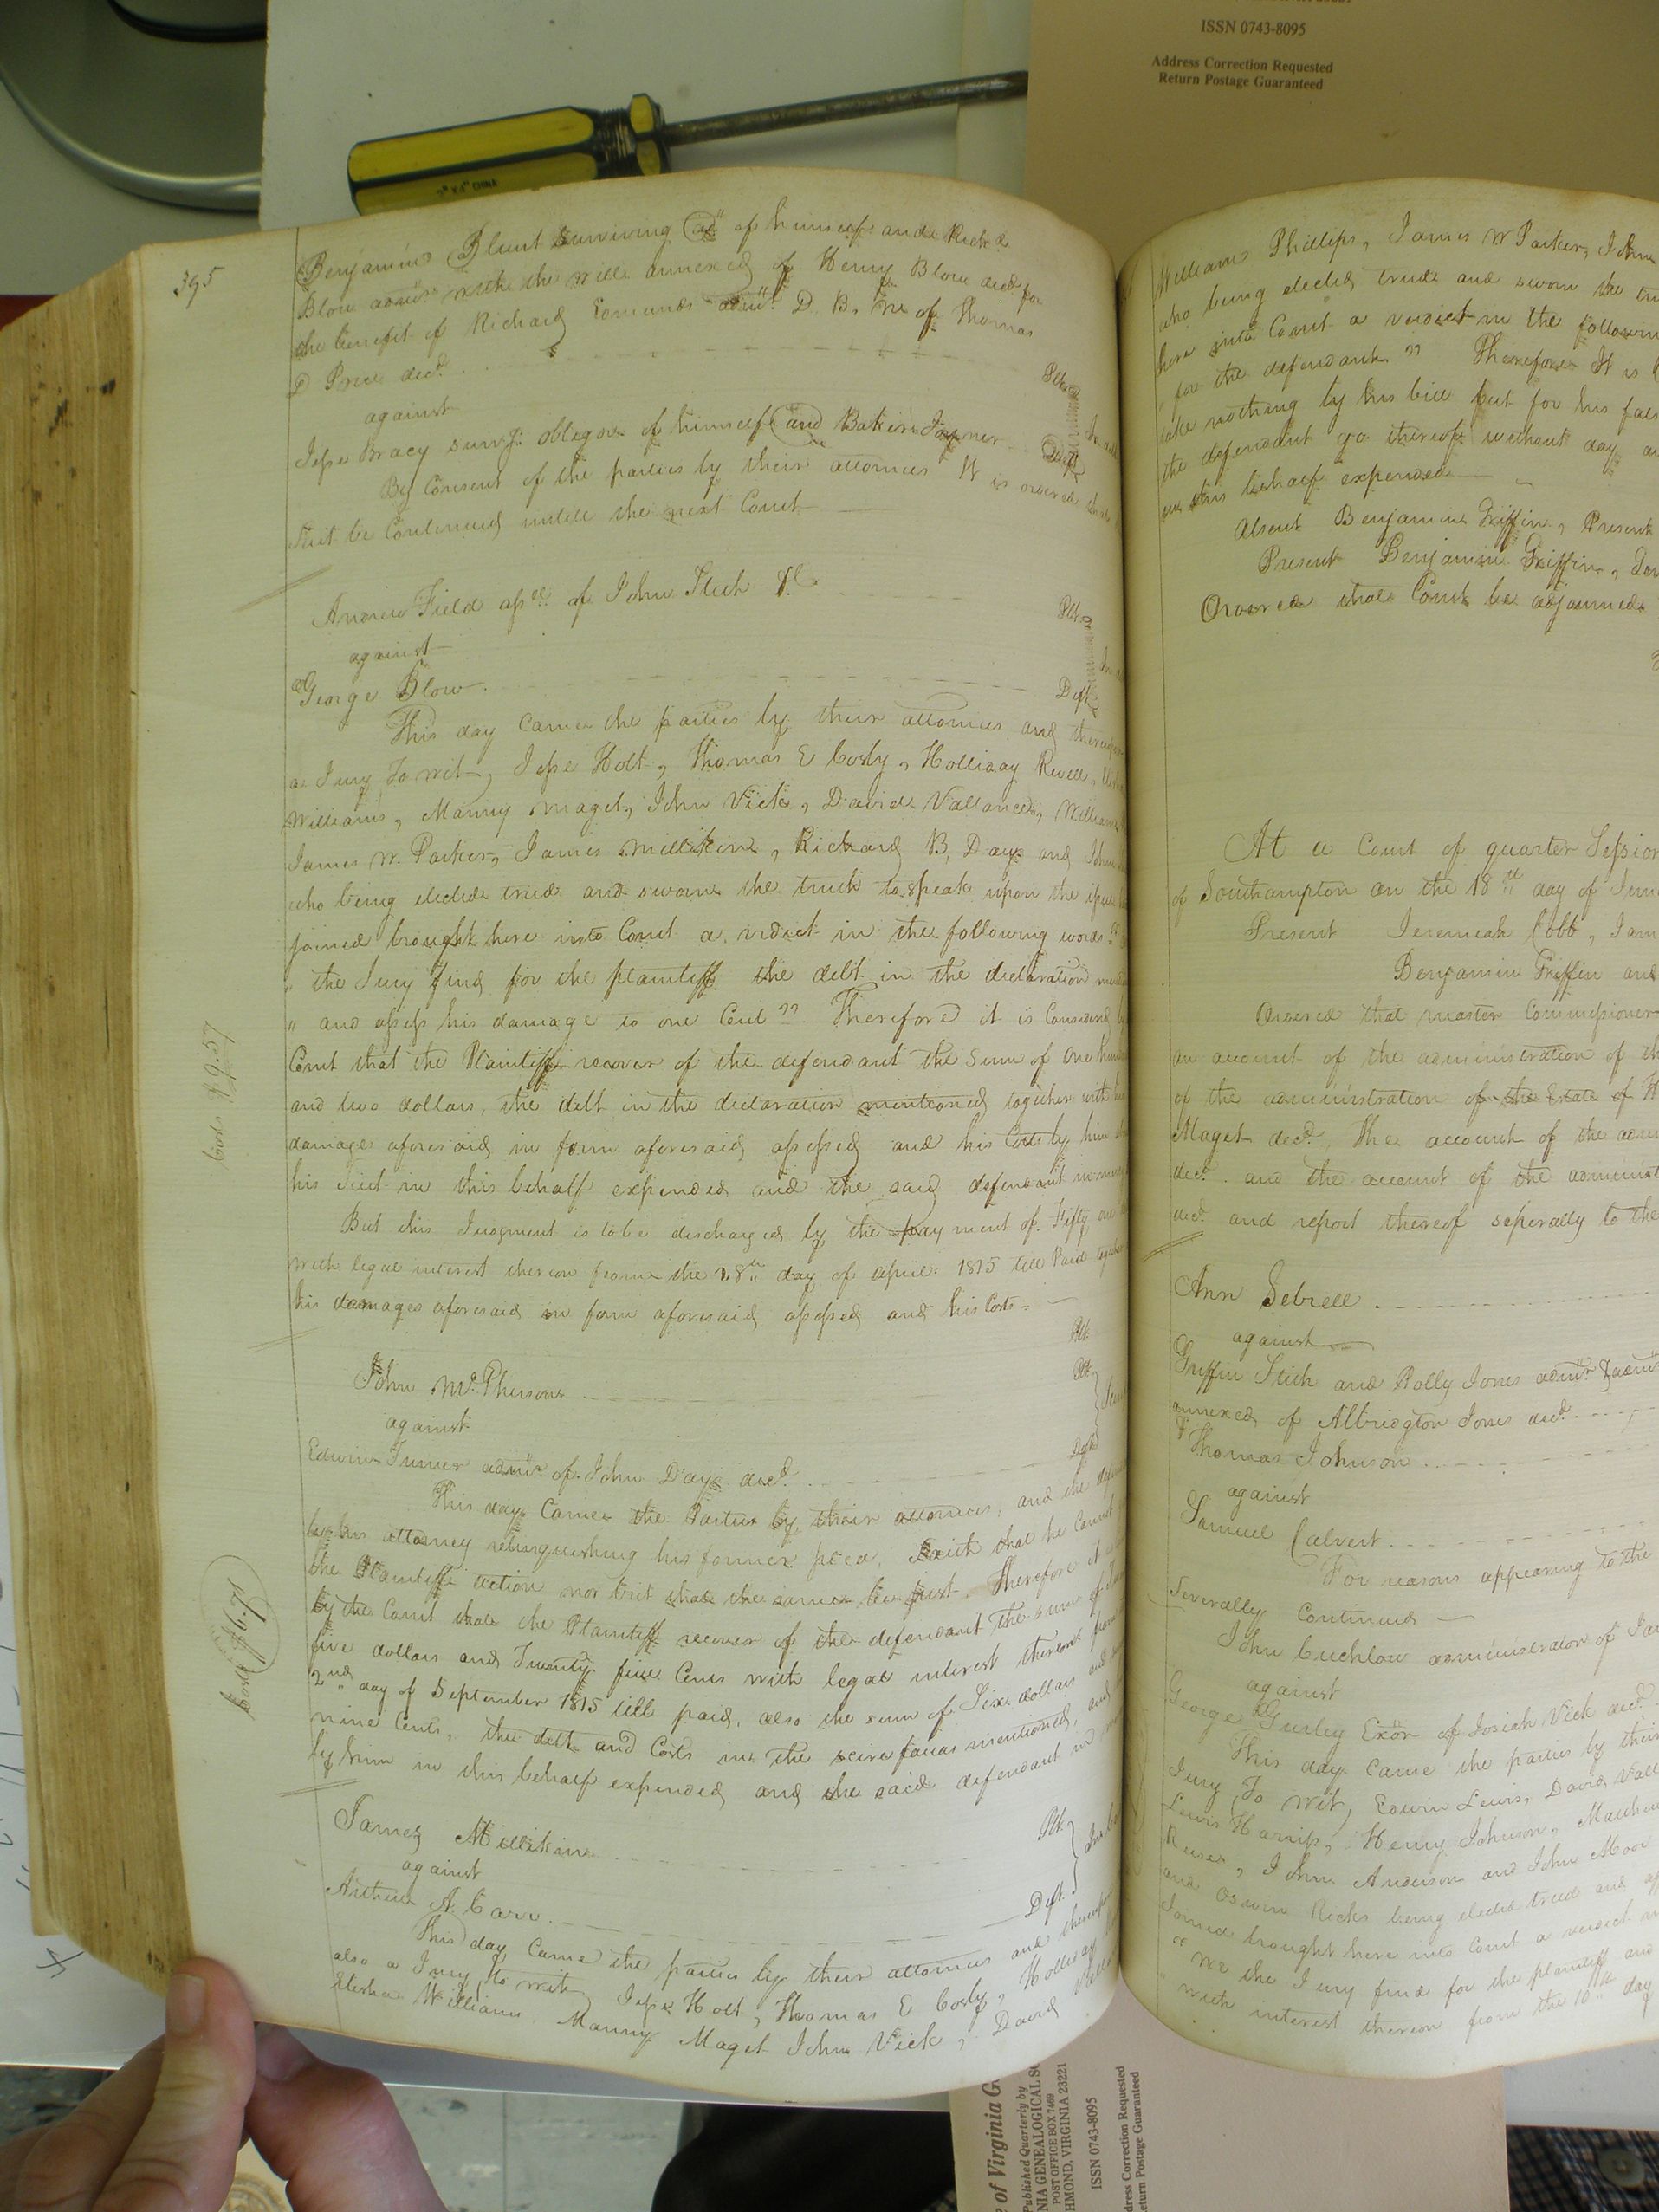 ISSN 0743-8095
Address Correction Requested
Return Postage Guaranteed
395
Benjamin Blunt surviving of himself and Richd
Blow admrs with the will annexed of Henry Blow decd for
the benefit of Richard Edmunds admr D. B. N. of Thomas
D Price decd.
Plts
against
Jesse Bracy survg obligor of himself and Baker Joyner
Deft
By Consent of the parties by their attornies It is ordered that
suit be Continued untill the next Court
Andrew Field assee of John Stith Jr
Plt
against
George Blow
Deft
This day came the parties by their attornies and thereupon
a Jury To wit, Jesse Holt, Thomas E Cosby, Holliday Revell,
Williams, Manny Maget, John Vick, David Vallance, William
James W. Parker, James Millikin, Richard B, Day and John
who being elected tried and sworn the truth to speak upon the issue
joined brought here into Court a verdict in the following words
" the Jury find for the plaintiff the debt in the declaration
" and assess his damage to one Cent " Therefore it is Considered
Court that the Plaintiff recover of the defendant the sum of one
and two dollars, the debt in the declaration mentioned together with
damages aforesaid in form aforesaid assessed and his Costs by him
his suit in this behalf expended and the said defendant in mercy
Costs $9.57
But this Judgment is to be discharged by the payment of Fifty one
with legal interest thereon from the 28th day of april 1815 till Paid
his damages aforesaid in form aforesaid assessed and his Costs
Plt
John McPherson
Plt
against
Edwin Turner admr. of John Day decd.
Deft
This day Came the Parties by their attornies, and the
by his attorney relinquishing his former plea, saith that he Cannot
the Plaintiffs action nor but that the same be just. Therefore it
by the Court that the Plaintiff recover of the defendant the sum of
five dollars and Twenty five Cents with legal interest thereon from
2nd day of September 1815 till paid, also the sum of Six dollars
nine Cents, the debt and Costs in the scire facias mentioned, and
by him in this behalf expended and the said defendant in
James Millikin
Plt
against
A. Carr
Deft.
This day Came the parties by their attornies and thereupon
also a Jury to wit, Jesse Holt, Thomas E Cosby, Holliday
Elisha Williams, Manny Maget John Vick, David
William Phillips, James W Parker, John
who being elected tried and sworn the
here into Court a verdict in the following
for the defendant " Therefore It is
take nothing by his bill but for his
the defendant go thereof without day
in this behalf expended
Absent Benjamin Griffin, Present
Present Benjamin Griffin,
Ordered that Court be adjourned
At a Court of quarter Session
of Southampton on the 18th day of
Present Jeremiah Cobb,
Benjamin Griffin and
Ordered that master Commissioner
an account of the administration of
of the administration of the Estate of
Maget decd. The account of the
decd. and the account of the
decd and report thereof seperally to the
Ann Sebrell
against
Griffin Stith and Polly Jones admrs
annexed of Albridgton Jones decd.
Thomas Johnson
against
Samuel Calvert
For reasons appearing to the
Severally Continued
John Crichlow administrator of
against
George Gurley Exor of Josiah Vick decd
This day Came the parties by their
Jury, To wit, Edwin Lewis, David
Lewis Harriss, Henry Johnson,
John Anderson and John Moor
and Ricks being elected tried and
Joined brought here into Court a verdict
" We the Jury find for the plaintiff and
" with interest thereon from the 10th day
of Virginia
Published Quarterly by
GENEALOGICAL
POST OFFICE BOX 7469
VIRGINIA 23221
ISSN 0743-8095
Address Correction Requested
Return Postage Guaranteed